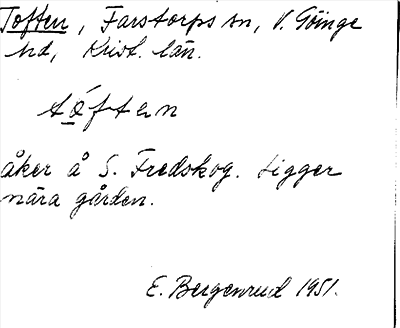 Toften, Farstorps sn, V. Göinge
hd, Krist. län.
tǿften
åker å S. Fredskog. Ligger
nära gården.
E. Bergenrud 1951.